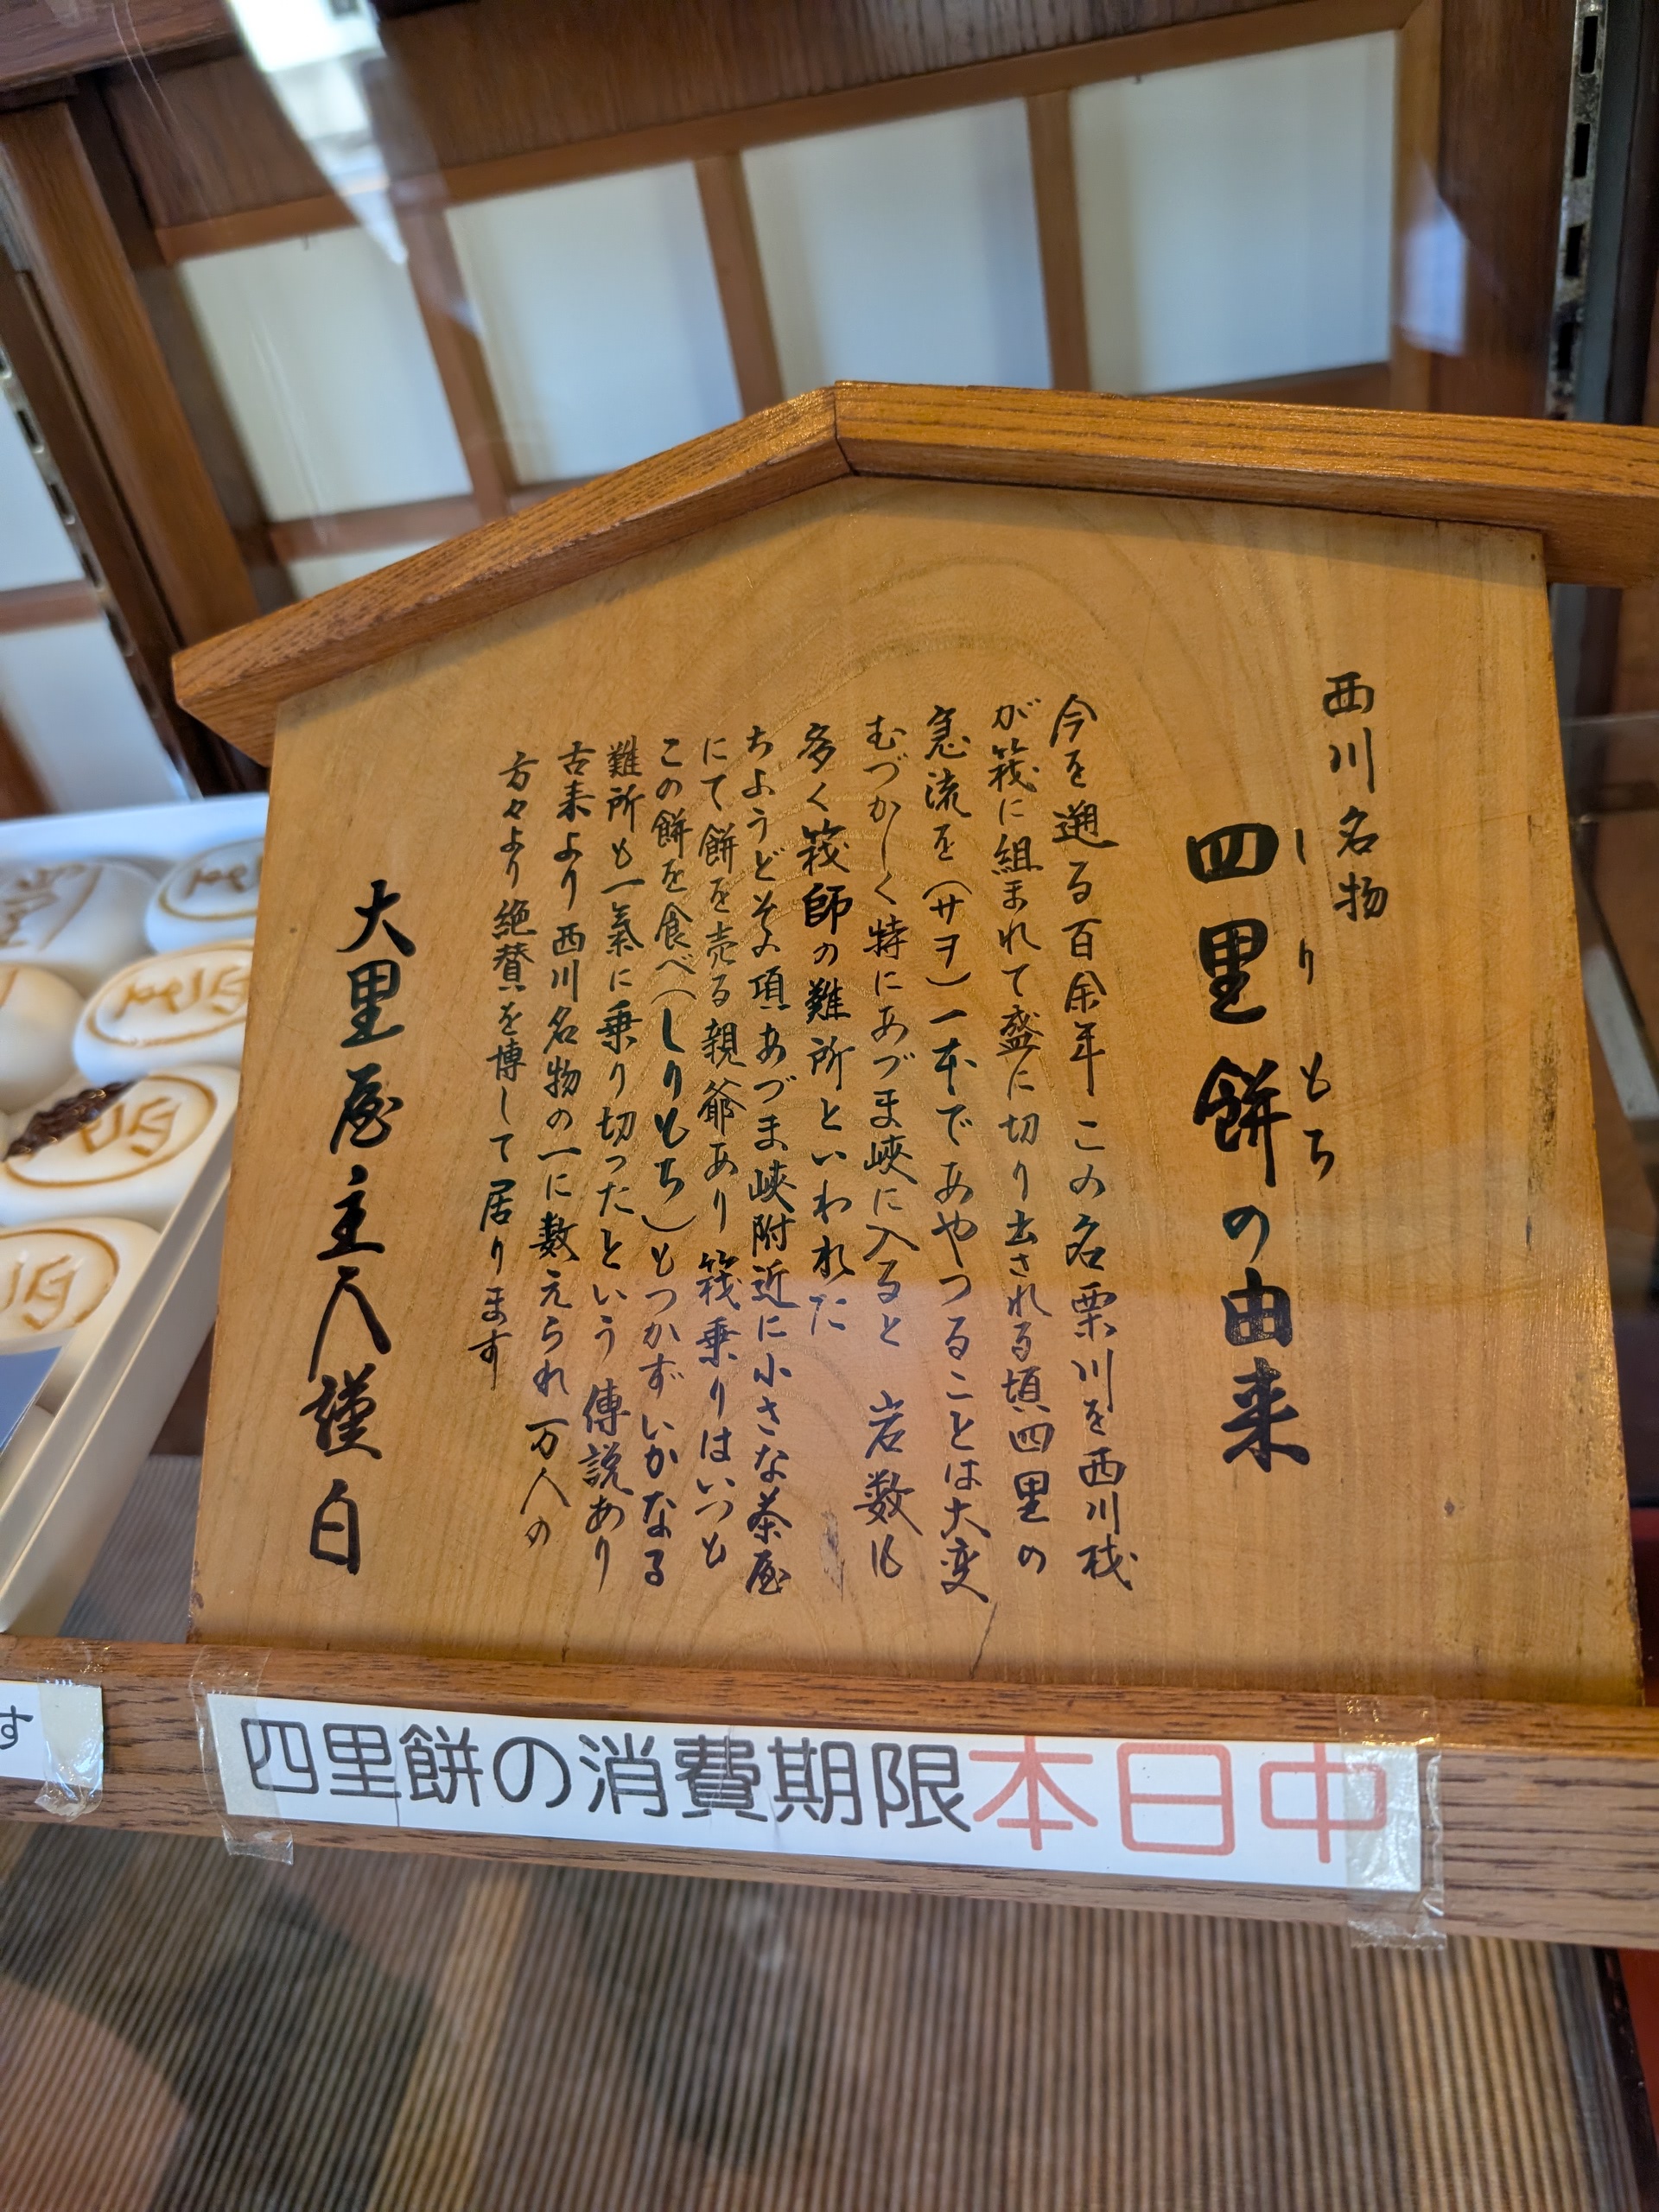 西川名物
しりもち
四里餅の由来
今を遡る百余年 この名栗川を西川材
が筏に組まれて盛に切り出される頃四里の
急流を(サヲ)一本であやつることは大変
むづかしく特にあづま峡に入ると 岩数も
多く筏師の難所といわれた
ちようどその頃あづま峡附近に小さな茶屋
にて餅を売る親爺あり筏乗りはいつも
この餅を食べ(しりもち)もつかずいかなる
難所も一氣に乗り切ったという傳説あり
古来より西川名物の一に数えられ万人の
方々より絶賛を博して居ります
大里屋主人謹白
四里餅の消費期限本日中
す